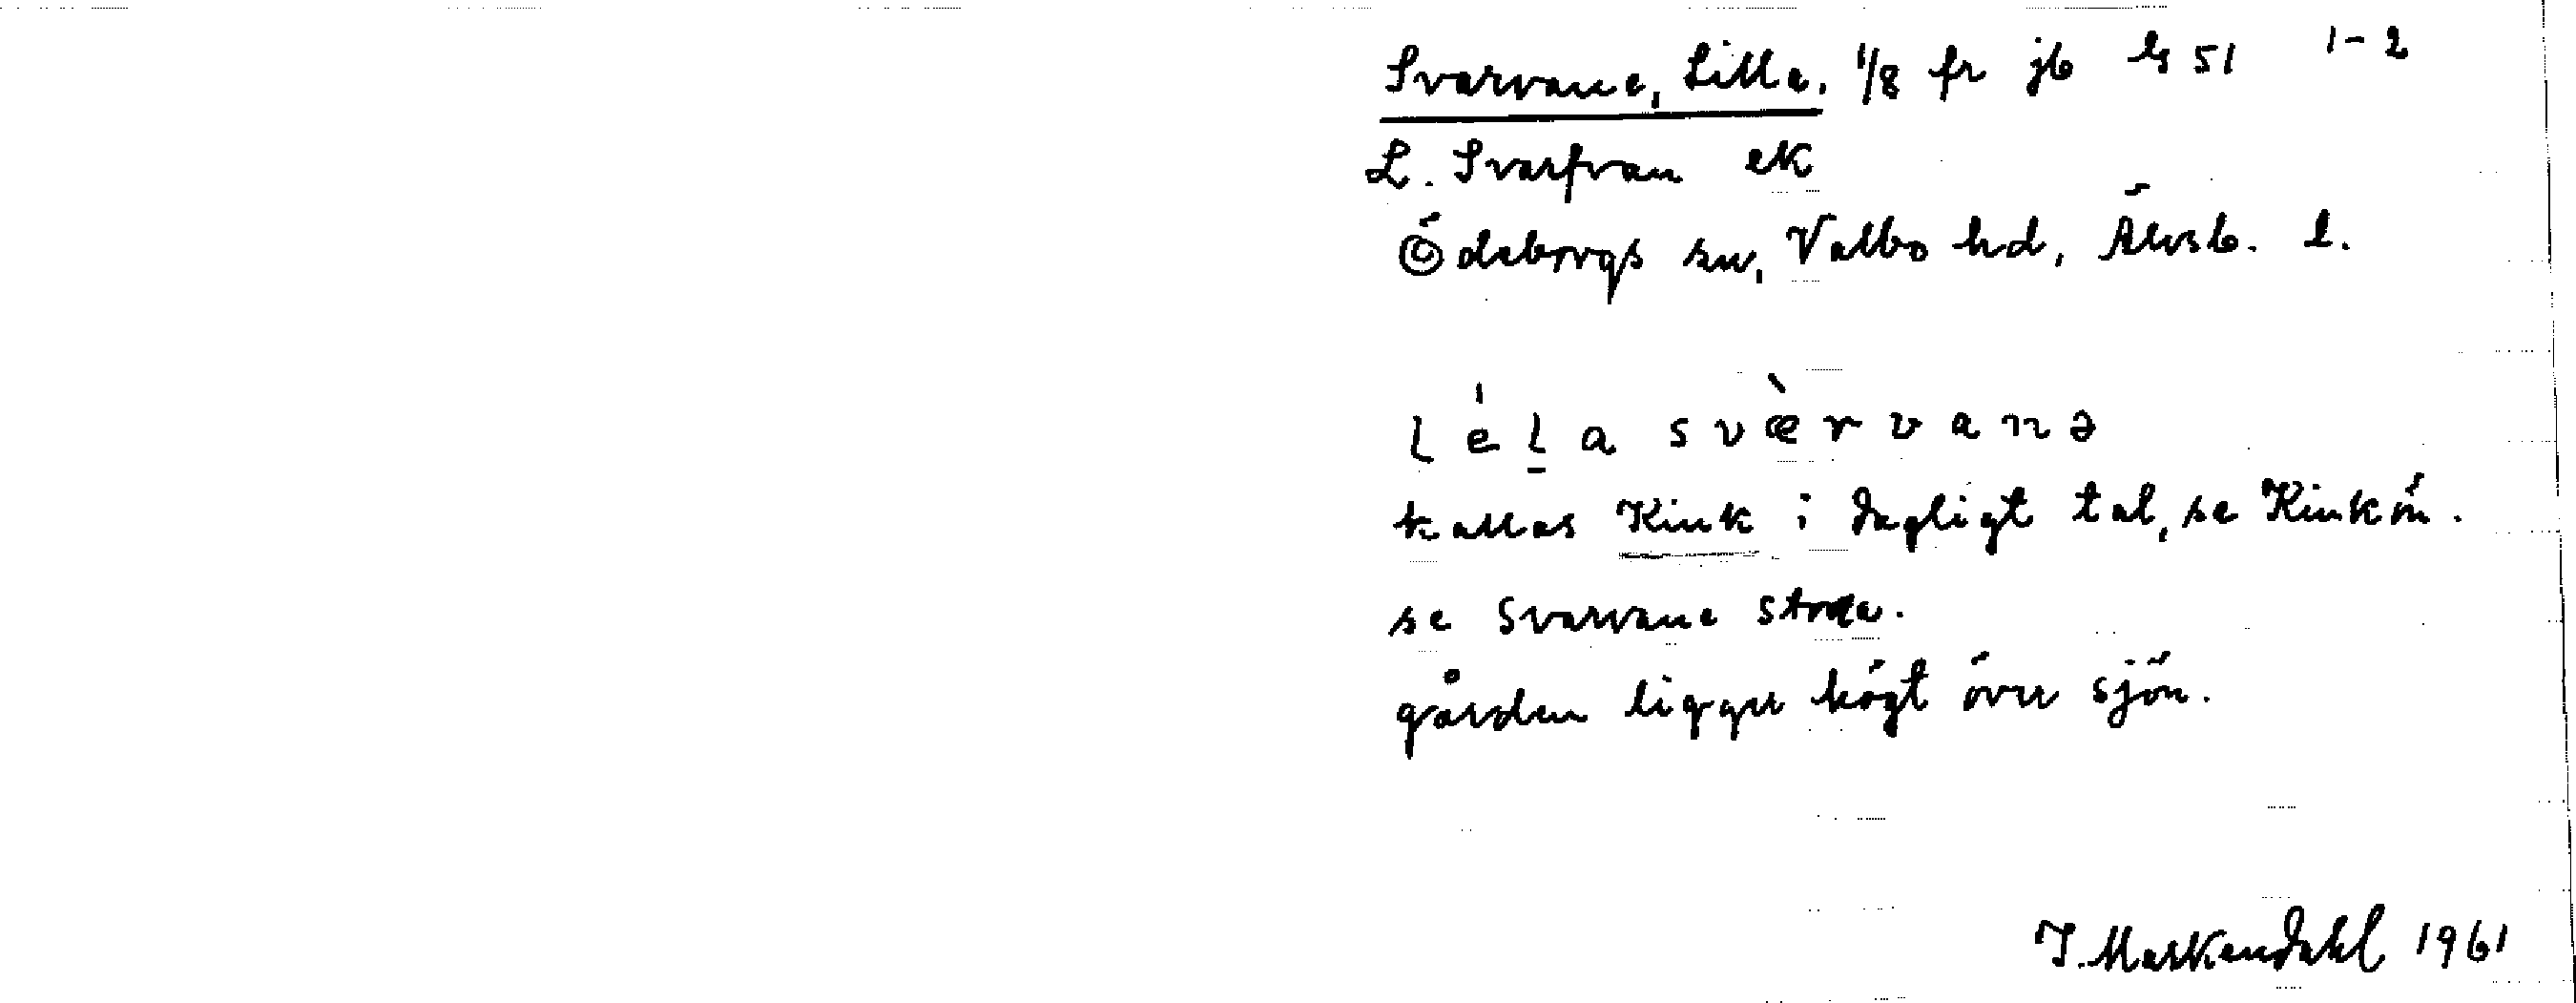 Svarvane, Lilla, 1/8 fr jb ls 51 1-2
L. Svarfvan ek
Ödeborgs sn, Valbo hd, Älvsb. l.
léla svæ̀rvanə
kallas Kink i dagligt tal, se Kinkön.
se Svarvane Stora.
gården ligger högt över sjön.
I. Markendahl 1961